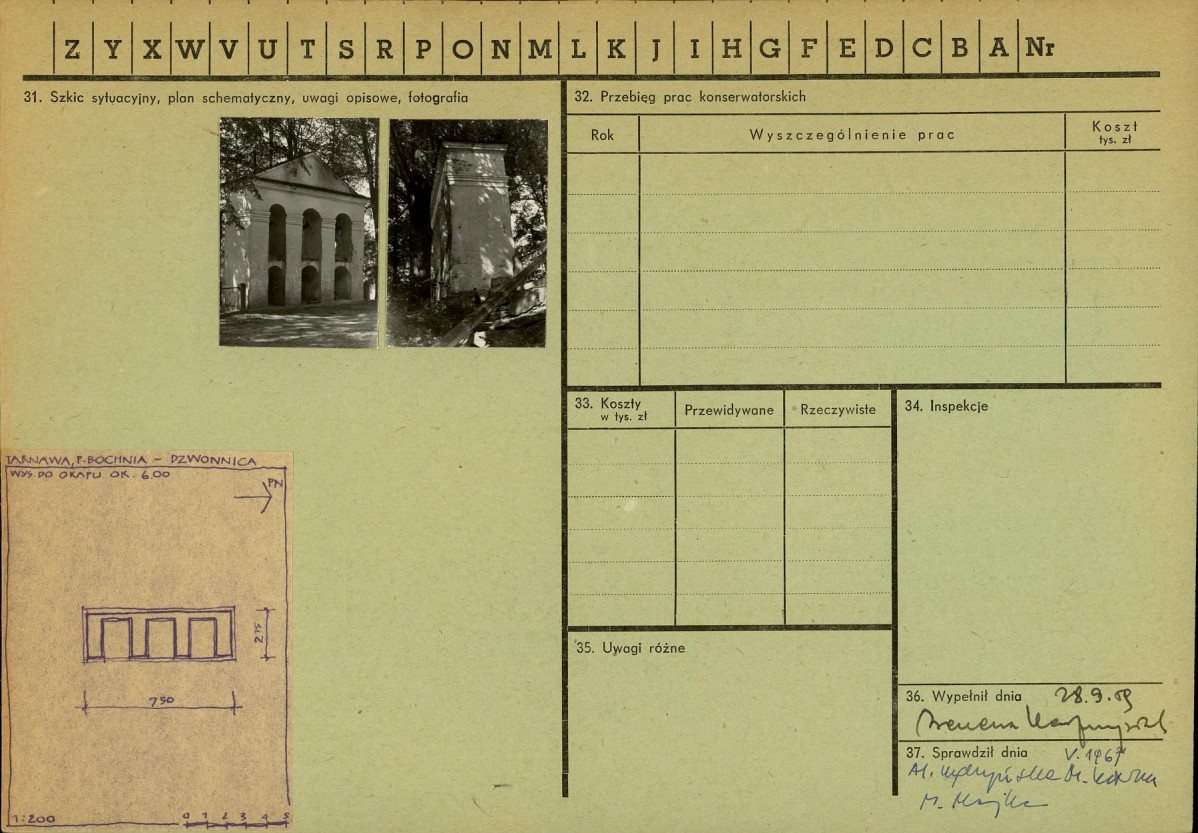 Z Y X W V U T S R P O N M L K J I H G F E D C B A Nr
31. Szkic sytuacyjny, plan schematyczny, uwagi opisowe, fotografia
TARNAWA, P. BOCHNIA – DZWONNICA
WYS. DO OKAPU OK. 6.00
PN
215
750
1:200
0 1 2 3 4 5
32. Przebieg prac konserwatorskich
Rok
Wyszczególnienie prac
Koszt
tys. zł
33. Koszty
w tys. zł
Przewidywane
Rzeczywiste
34. Inspekcje
35. Uwagi różne
36. Wypełnił dnia 28.9.59
37. Sprawdził dnia V. 1967